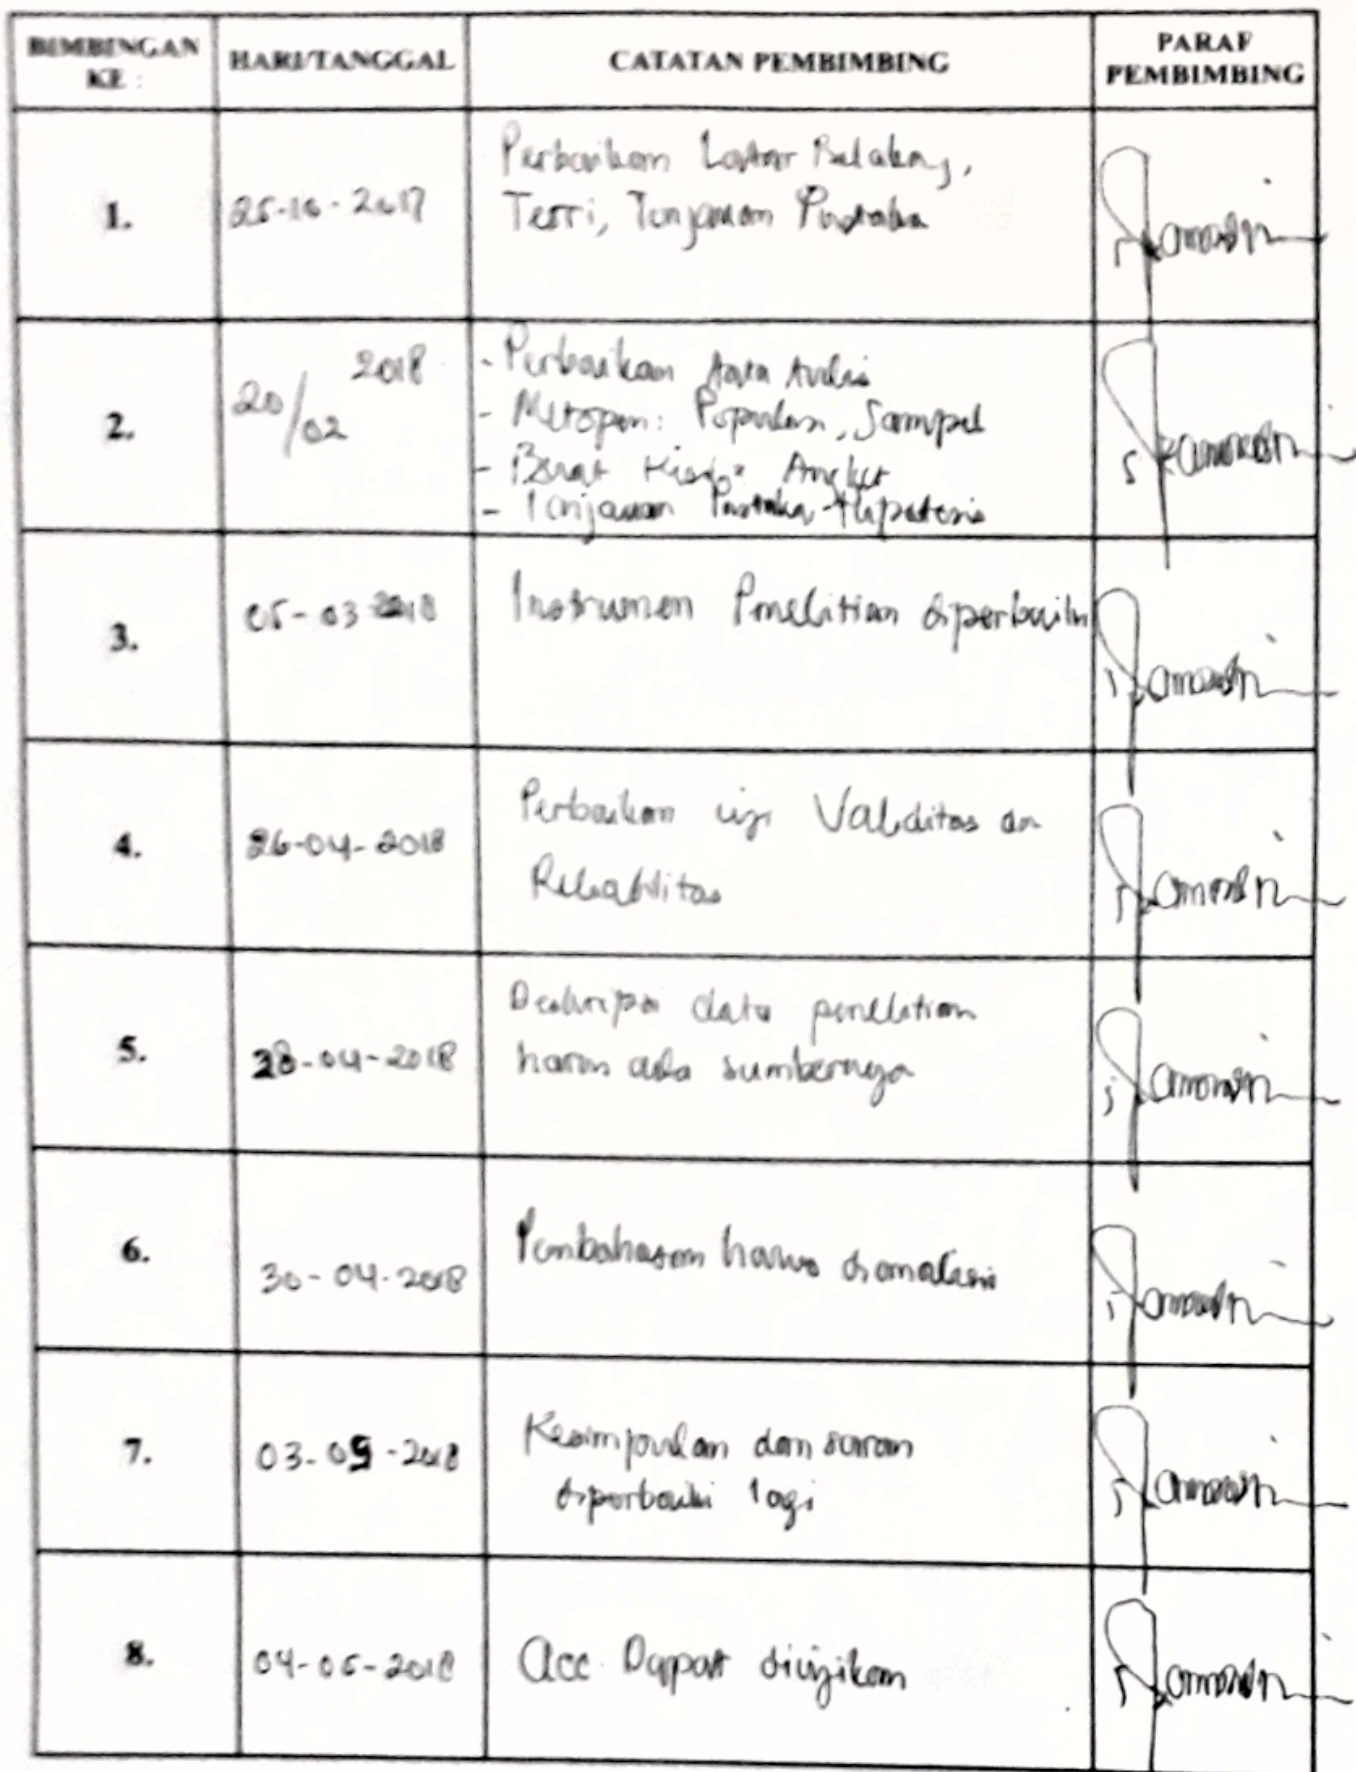 BIMBINGAN
KE :
HARI/TANGGAL
CATATAN PEMBIMBING
PARAF
PEMBIMBING
1.
25-10-2017
Perbaikan Latar Belakang,
Teori, Tinjauan Pustaka
2.
20/02 2018
- Perbaikan Tulis
- Metopen: Populasi, Sampel
- Buat Kisi² Angket
- Tinjauan Pustaka - Hipotesis
3.
05-03 2018
Instrumen Penelitian diperbaiki
4.
26-04-2018
Perbaikan uji Validitas dan
Reliabilitas
5.
28-04-2018
Deskripsi data penelitian
harus ada sumbernya
6.
30-04-2018
Pembahasan harus dianalisis
7.
03-05-2018
Kesimpulan dan saran
diperbaiki lagi
8.
04-05-2018
acc Dapat diujikan